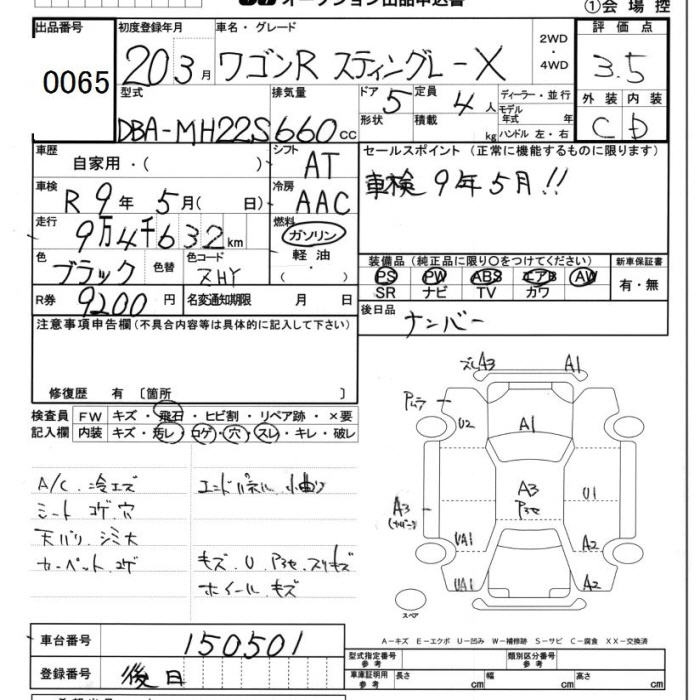 オークション出品申込書
①会場控
出品番号
0065
初度登録年月
20 3月
車名・グレード
ワゴンR スティングレーX
2WD
・
4WD
評価点
3.5
外装 内装
C D
型式
DBA-MH22S
排気量
660cc
ドア
5
形状
定員
4人
積載
kg
ディーラー・並行
モデル
年式 年
ハンドル 左・右
車歴
自家用・( )
シフト
AT
車検
R 9年 5月( 日)
冷房
AAC
走行
9万4千632km
燃料
ガソリン
軽油
・( )
色
ブラック
色替
色コード
ZHY
R券
9200円
名変通知期限 月 日
セールスポイント (正常に機能するものに限ります)
車検9年5月!!
装備品 (純正品に限り○をつけてください)
PS PW ABS エアB AW
SR ナビ TV カワ
新車保証書
有・無
後日品
ナンバー
注意事項申告欄(不具合内容等は具体的に記入して下さい)
修復歴 有 〔箇所 〕
検査員
記入欄
FW キズ・飛石・ヒビ割・リペア跡・×要
内装 キズ・汚レ・コゲ・穴・スレ・キレ・破レ
A/C 冷エズ
シート コゲ穴
天バリ シミ大
カーペット コゲ
エンドパネル 小曲り
キズ.U P3セ.スリキズ
ホイール キズ
A3 A1
U2
A1
A3
P3セ
U1
A3
UA1
A2
UA1
A2
スペア
A-キズ E-エクボ U-凹み W-補修跡 S-サビ C-腐食 XX-交換済
車台番号
150501
登録番号
後日
型式指定番号
参考
類別区分番号
参考
車庫証明用
参考
長さ cm 幅 cm 高さ cm